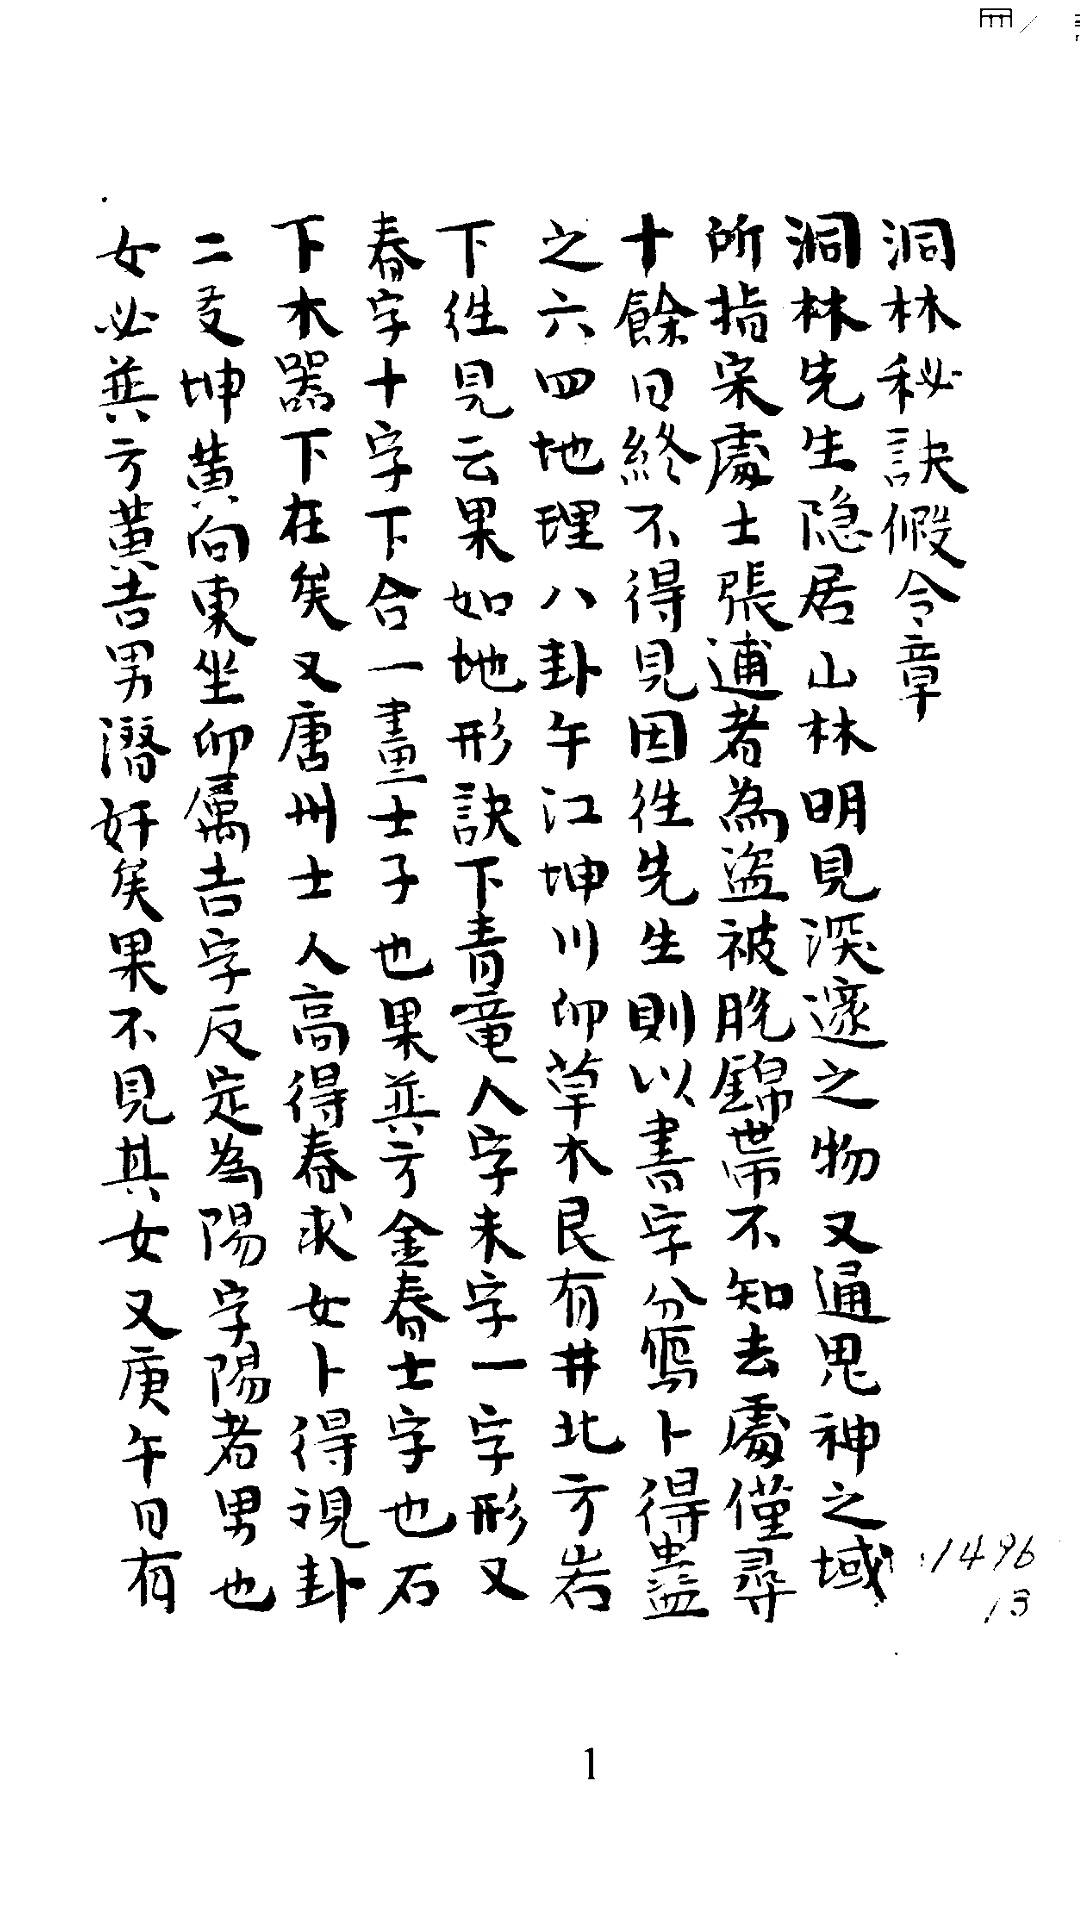 洞林秘訣假令章
洞林先生隐居山林明見深邃之物又通鬼神之域
所指宋處士張逋者為盗被脱錦帯不知去處僅尋
十餘日終不得見因徃先生則以書字分寫卜得蠱
之六四地理八卦午江坤川卯草木艮有井北方岩
下徃見云果如地形訣下青竜人字未字一字形又
春字十字下合一畫士子也果並方金春士字也石
下木器下在矣又唐州士人高得春求女卜得視卦
二爻坤黄向東坐卯属吉字反定為陽字陽者男也
女必並方黄吉男潛奸矣果不見其女又庚午日有
1496
13
1